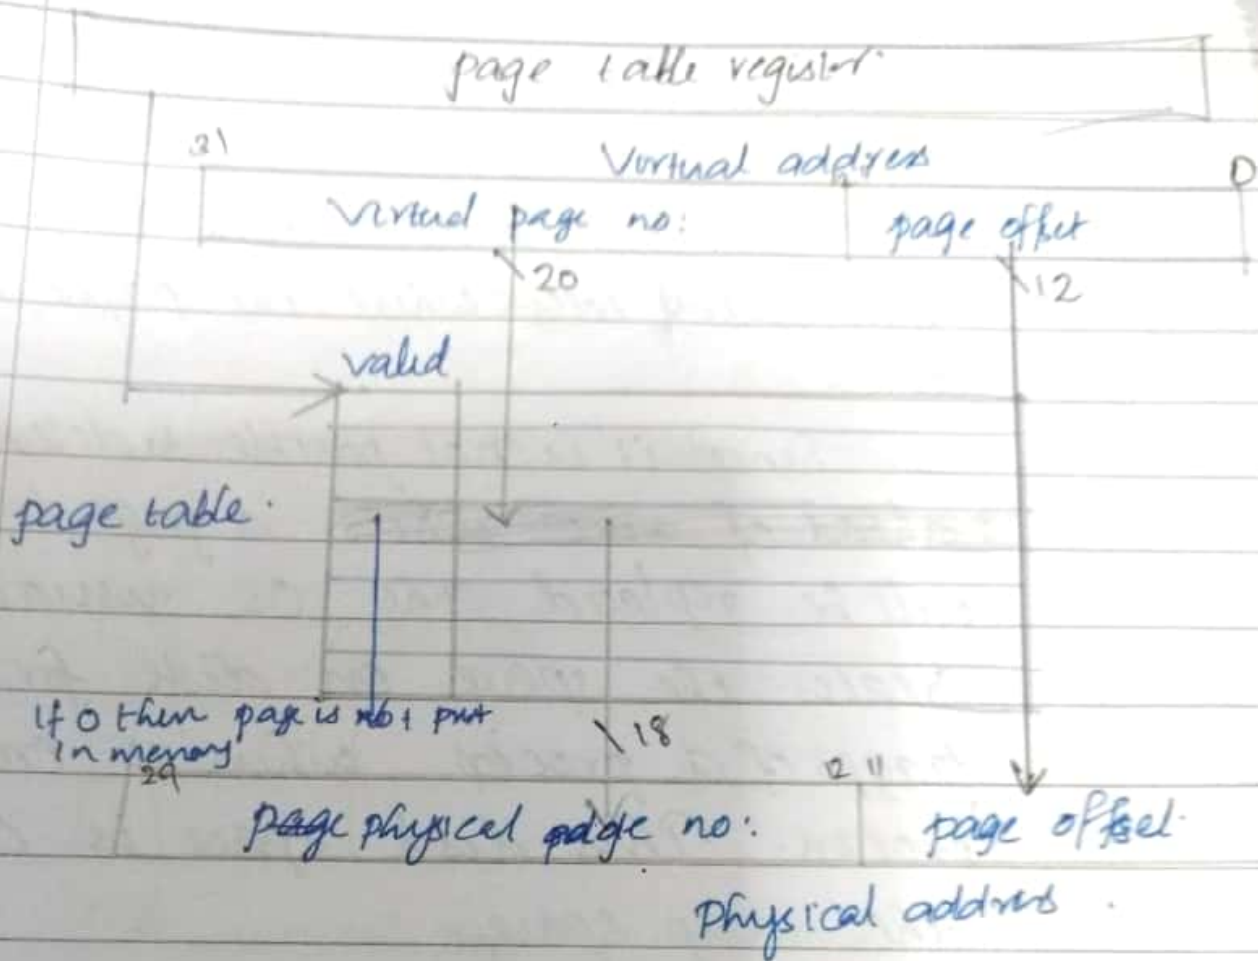 page table register
31
Virtual address
0
Virtual page no:
page offset
20
12
valid
page table.
If 0 then page is not
in memory
18
29
12 11
physical page no:
page offset
Physical address